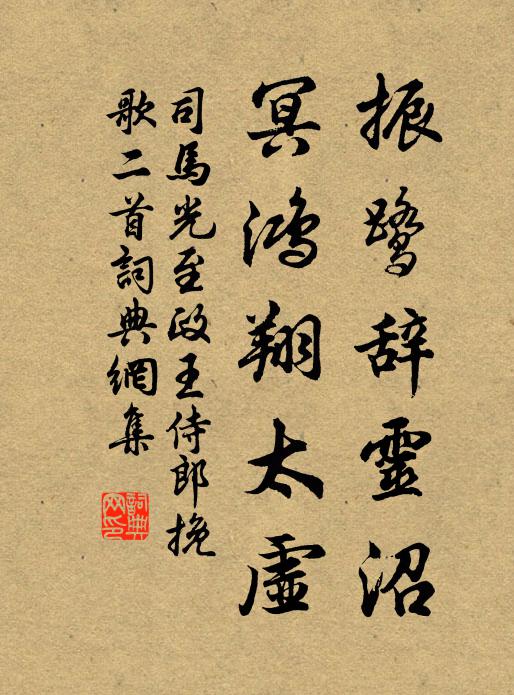 振鹭辞靈沼
冥鴻翔太虛
司馬光至政王侍郎挽
歌二首詞典網集
詞典網印